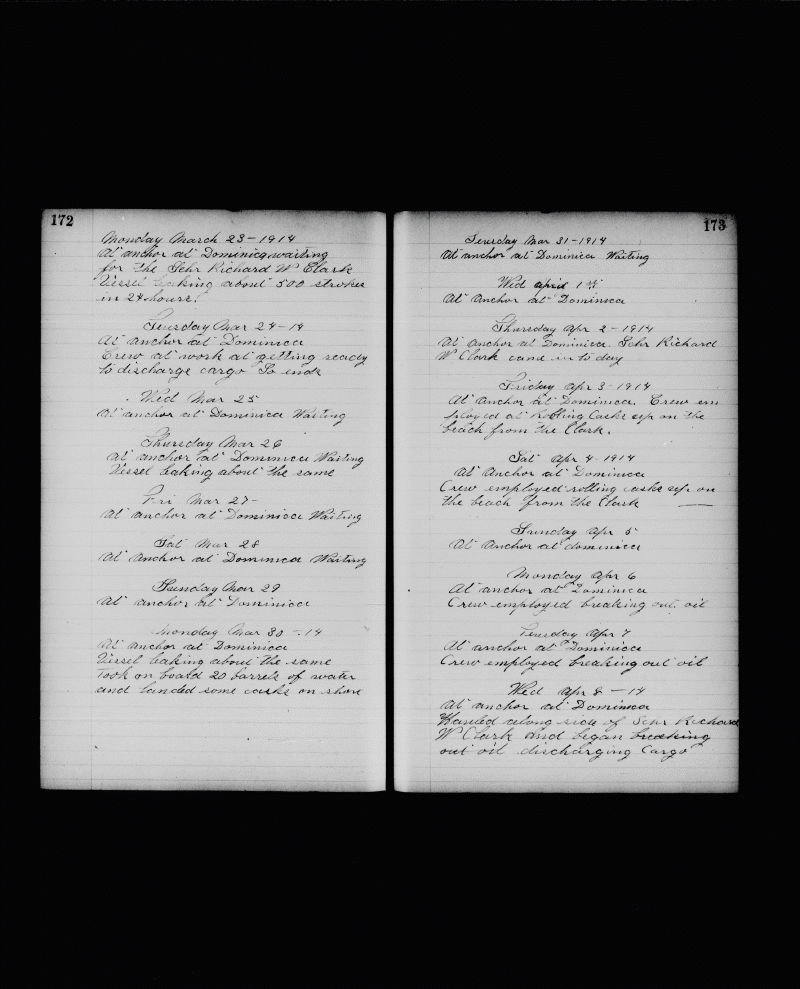 172
Monday March 23-1914
At anchor at Dominica waiting
for the Schr Richard W Clark
Vessel leaking about 500 strokes
in 24 hours.
Teusday Mar 24-14
At anchor at Dominica
Crew at work at getting ready
to discharge cargo So ends
Wed Mar 25
At anchor at Dominica Waiting
Thursday Mar 26
At anchor at Dominica Waiting
Vessel leaking about the same
Fri Mar 27-
At anchor at Dominica Waiting
Sat Mar 28
At Anchor at Dominica Waiting
Sunday Mar 29
At anchor at Dominica
Monday Mar 30-14
At anchor at Dominica
Vessel leaking about the same
Took on board 20 barrels of water
and landed some casks on shore
173
Teusday Mar 31-1914
At anchor at Dominica Waiting
Wed april 1st
At Anchor at Dominica
Thursday Apr 2-1914
At anchor at Dominica. Schr Richard
W Clark came in to day
Friday Apr 3-1914
At Anchor at Dominica. Crew em
ployed at Rolling Casks up on the
beach from the Clark.
Sat Apr 4-1914
At Anchor at Dominica
Crew employed rolling casks up on
the beach from the Clark
Sunday Apr 5
At Anchor at dominica
Monday Apr 6
At anchor at Dominica
Crew employed breaking out oil
Teusday Apr 7
At anchor at Dominica
Crew employed breaking out oil
Wed Apr 8-14
At anchor at Dominica
Hauled along side of Schr Richard
W Clark And began breaking
out oil discharging Cargo